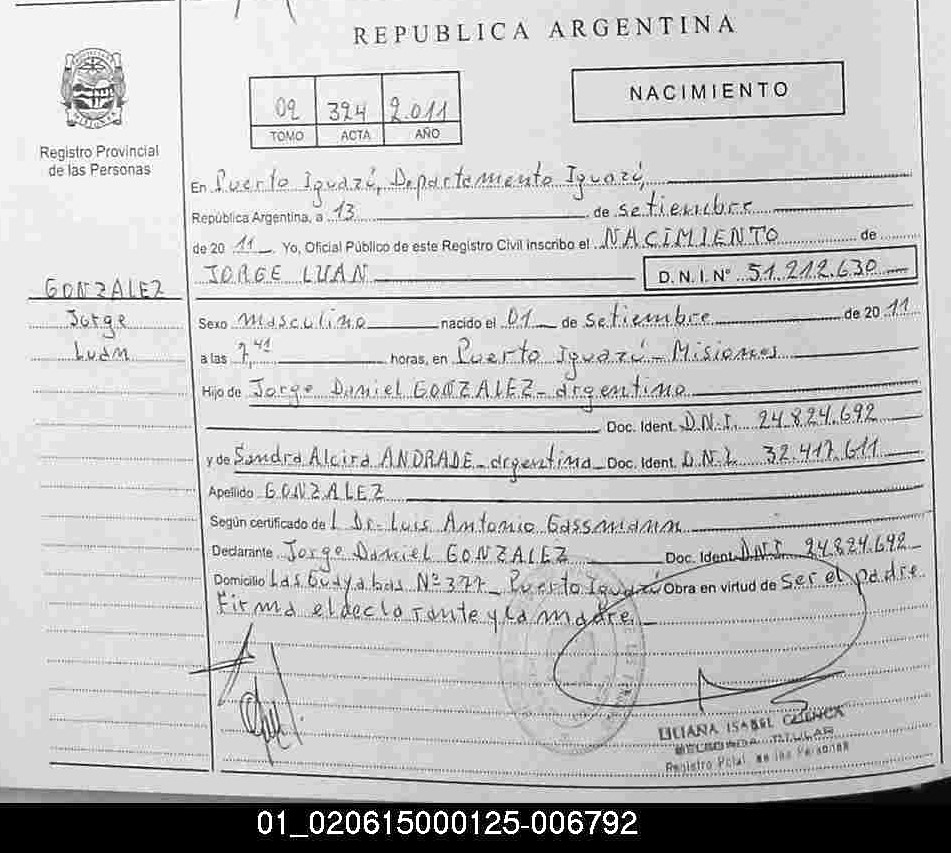 REPUBLICA ARGENTINA
Registro Provincial
de las Personas
02 324 2.011
TOMO ACTA AÑO
NACIMIENTO
En Puerto Iguazú, Departamento Iguazú,
República Argentina, a 13 de setiembre
de 20 11 Yo, Oficial Público de este Registro Civil inscribo el NACIMIENTO de
JORGE LUAN D.N.I.Nº 51.212.630
GONZALEZ
Jorge
Luan
Sexo masculino nacido el 01 de setiembre de 20 11
a las 7,41 horas, en Puerto Iguazú - Misiones
Hijo de Jorge Daniel GONZALEZ - argentino
Doc. Ident. D.N.I. 24.824.692
y de Sandra Alcira ANDRADE - argentina Doc. Ident. D.N.I. 32.417.611
Apellido GONZALEZ
Según certificado de Dr. Luis Antonio Gassmann
Declarante Jorge Daniel GONZALEZ Doc. Ident. D.N.I. 24.824.692
Domicilio Las Guayabas Nº 377 - Puerto Iguazú Obra en virtud de ser el padre.
Firma el declarante y la madre.
LILIANA ISABEL CUENCA
TITULAR
Registro Pcial. de las Personas
01_020615000125-006792